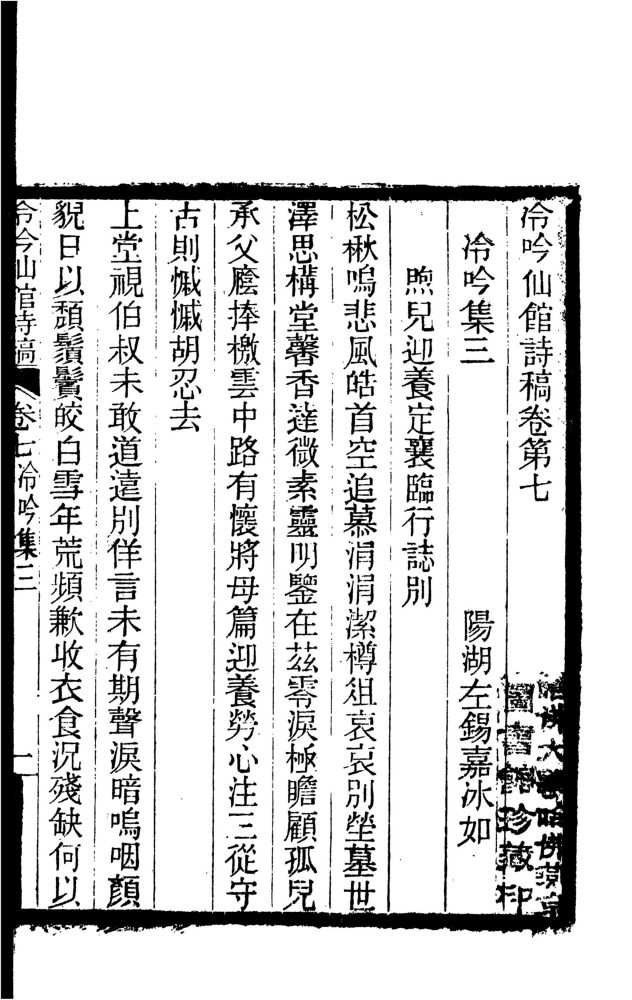 冷吟仙館詩稿卷第七
冷吟集三
陽湖左錫嘉冰如
煦兒迎養定襄臨行誌別
松楸嗚悲風皓首空追慕涓涓潔樽俎哀哀別塋墓世
澤思構堂馨香達微素靈明鑒在茲零淚極瞻顧孤兒
承父廕捧檄雲中路有懷將母篇迎養勞心注三從守
古則慽慽胡忍去
上堂視伯叔未敢道遠別佯言未有期聲淚暗嗚咽顏
貌日以頽鬚鬢皎白雪年荒頻歉收衣食況殘缺何以
冷吟仙館詩稿
卷七冷吟集三
一
大 哈佛燕京
圖書館珍藏印